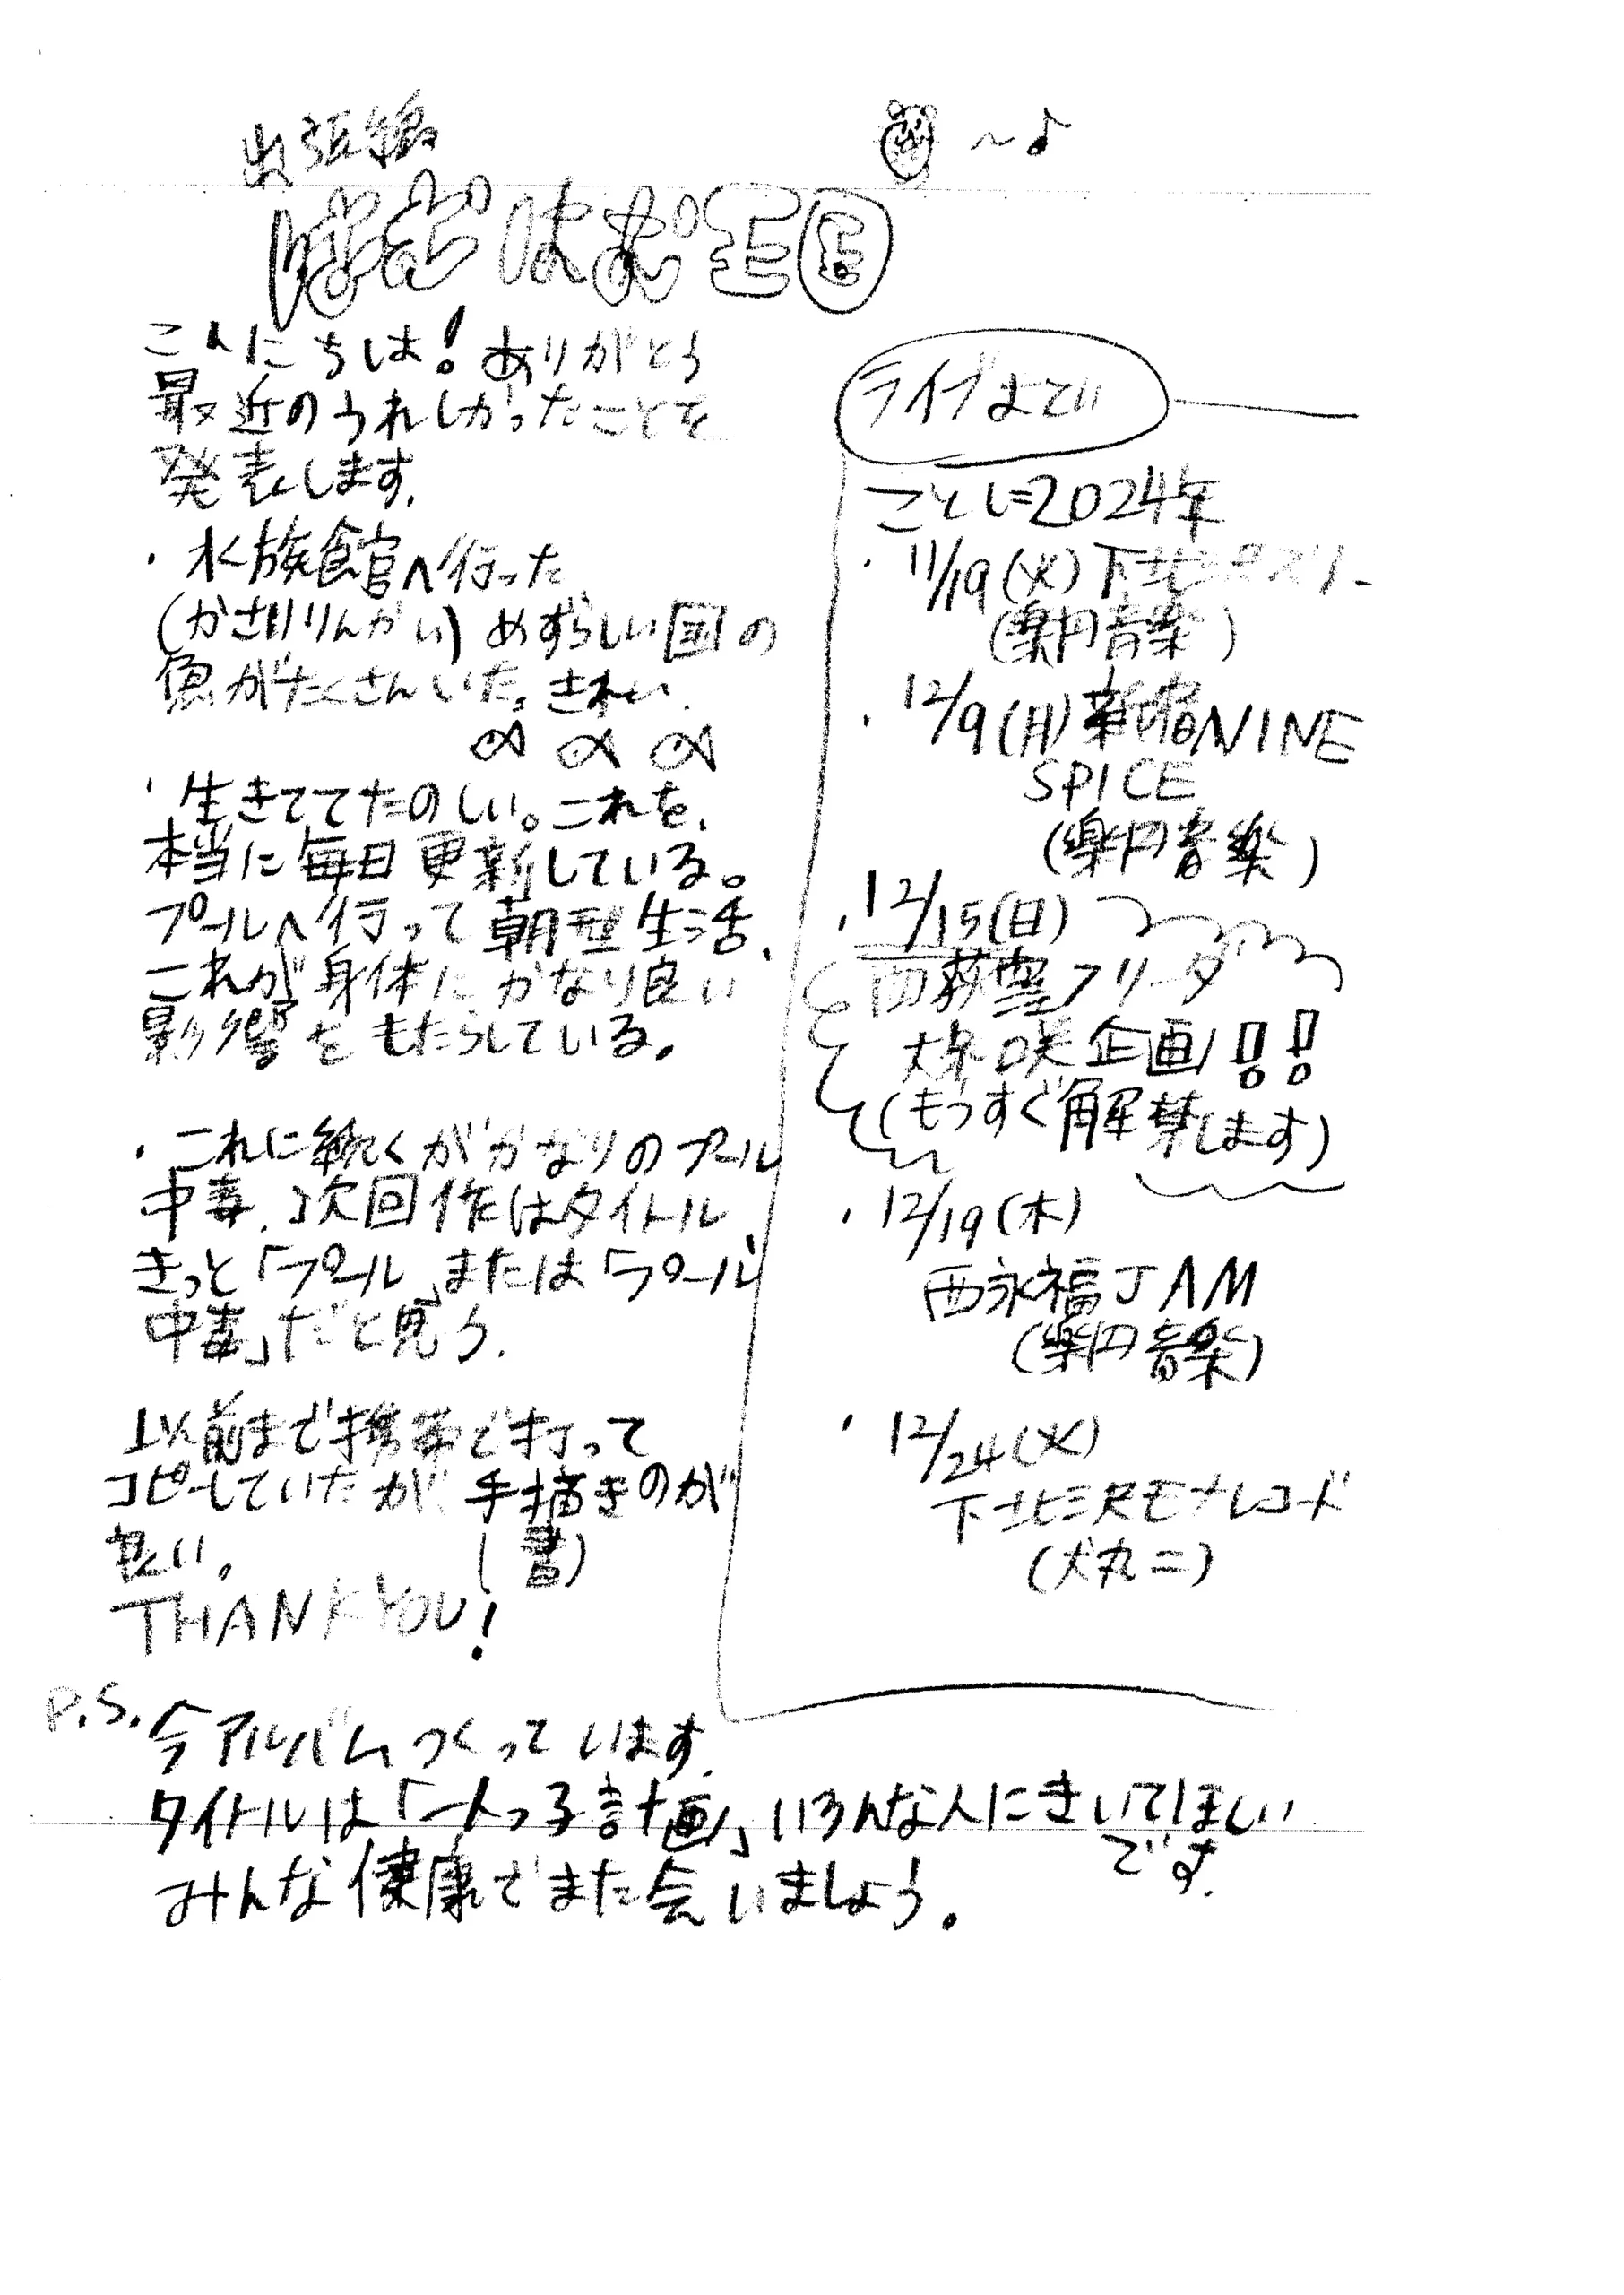 出張編
こんにちは！ありがとう
最近のうれしかったことを
発表します.
・水族館へ行った
(かさいりんかい) めずらしい国の
魚がたくさんいた。きれい.
・生きててたのしい。これを、
本当に毎日更新している。
プールへ行って朝型生活、
これが身体にかなり良い
影響をもたらしている。
・これに続くがかなりのプール
中毒.次回作はタイトル
きっと「プール」または「プール
中毒」だと思う.
以前まで携帯で打って
コピーしていたが、手描きのが
(書)
良い。
THANK YOU!
ライブよてい
ことし=2024年
・11/19(火)下北沢スリー
(楽円音楽)
・12/9(月)新宿NINE
SPICE
(楽円音楽)
・12/15(日)
西荻窪フリーダ
企画!!
(もうすぐ解禁します)
・12/19(木)
西永福JAM
(楽円音楽)
・12/24(火)
下北沢モナレコード
(犬丸ニ)
P.S.今アルバムつくっています.
タイトルは「一人っ子計画」いろんな人にきいてほしい
です.
みんな健康でまた会いましょう。